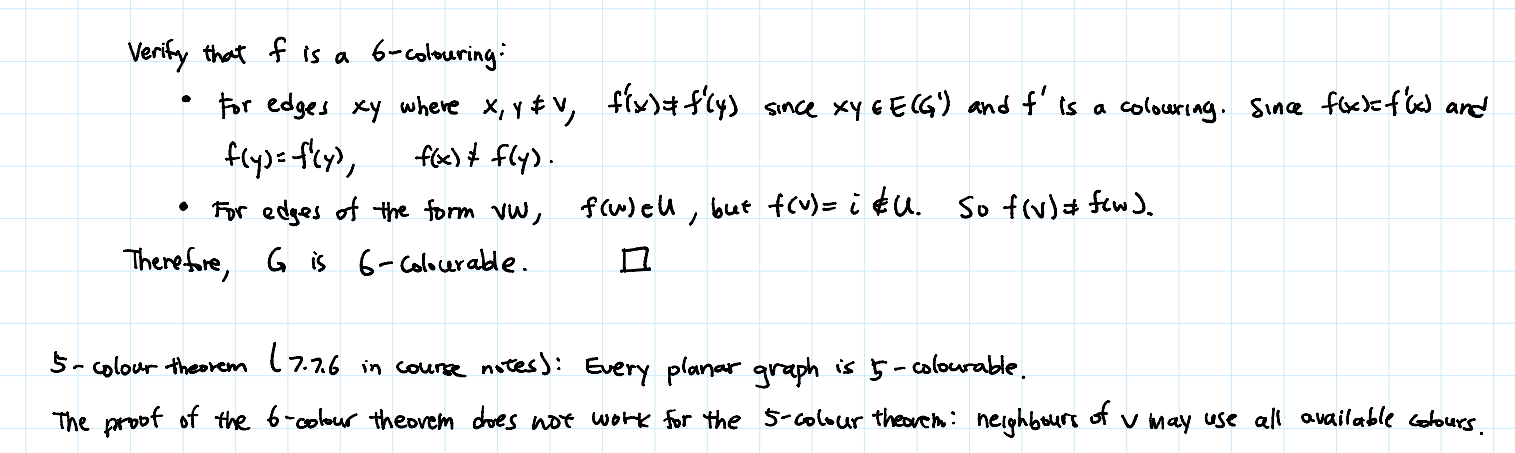 Verify that f is a 6-colouring:
• For edges xy where x, y ≠ v, f'(x) ≠ f'(y) since xy ∈ E(G') and f' is a colouring. Since f(x)=f'(x) and
f(y)=f'(y), f(x) ≠ f(y).
• For edges of the form vw, f(w) ∈ U, but f(v) = i ∉ U. So f(v) ≠ f(w).
Therefore, G is 6-colourable. □
5-colour theorem (7.7.6 in course notes): Every planar graph is 5-colourable.
The proof of the 6-colour theorem does not work for the 5-colour theorem: neighbours of v may use all available colours.